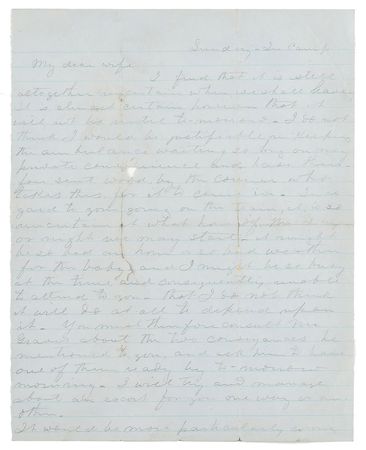 Sunday - In Camp
My dear wife
I find that it is still
altogether uncertain when we shall leave
It is almost certain however that it
will not be until to-morrow - I do not
think I would be justifiable in keeping
the ambulance waiting so long on my
private convenience and have there-
fore sent word by the courier who
takes this, for it to come in. In re-
gard to your going on the train, it is so
uncertain at what hour of the day
or night we may start - it might
be so bad an hour or so bad weather
for the baby, and I might be so busy
at the time and consequently unable
to attend to you - that I do not think
it will do at all to depend upon
it. You must therefore consult Mr
Graves about the two conveyances he
mentioned to you, and ask him to have
one of them ready by to-morrow
morning - I will try and manage
about an escort for you one way or an-
other.
It would be more particularly